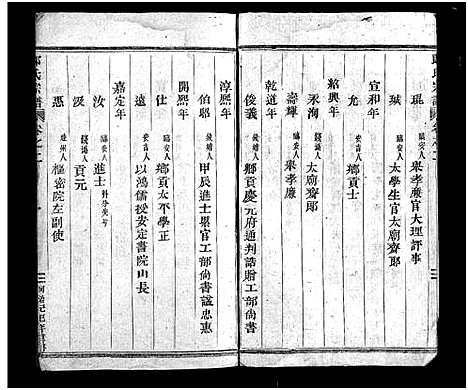 邱氏宗譜
琨 臨安人 舉孝廉官大理評事
珷 臨安人 太學生官太廟齋郎
宣和年
鄉貢士
紹興年
洵 太廟齋郎
壽輝 舉孝廉
乾道年
俊義 錢塘人 鄉貢慶元府通判誥贈工部尚書
淳熙年
伯 錢塘人 甲辰進士累官工部尚書諡忠惠
開熙年
仕 臨安人 鄉貢太平學正
遠 安吉人 以鴻儒授安定書院山長
嘉定年
汝 臨安人 進士
汲 錢塘人 貢元
憑 人 樞密院左副使
邱氏宗譜